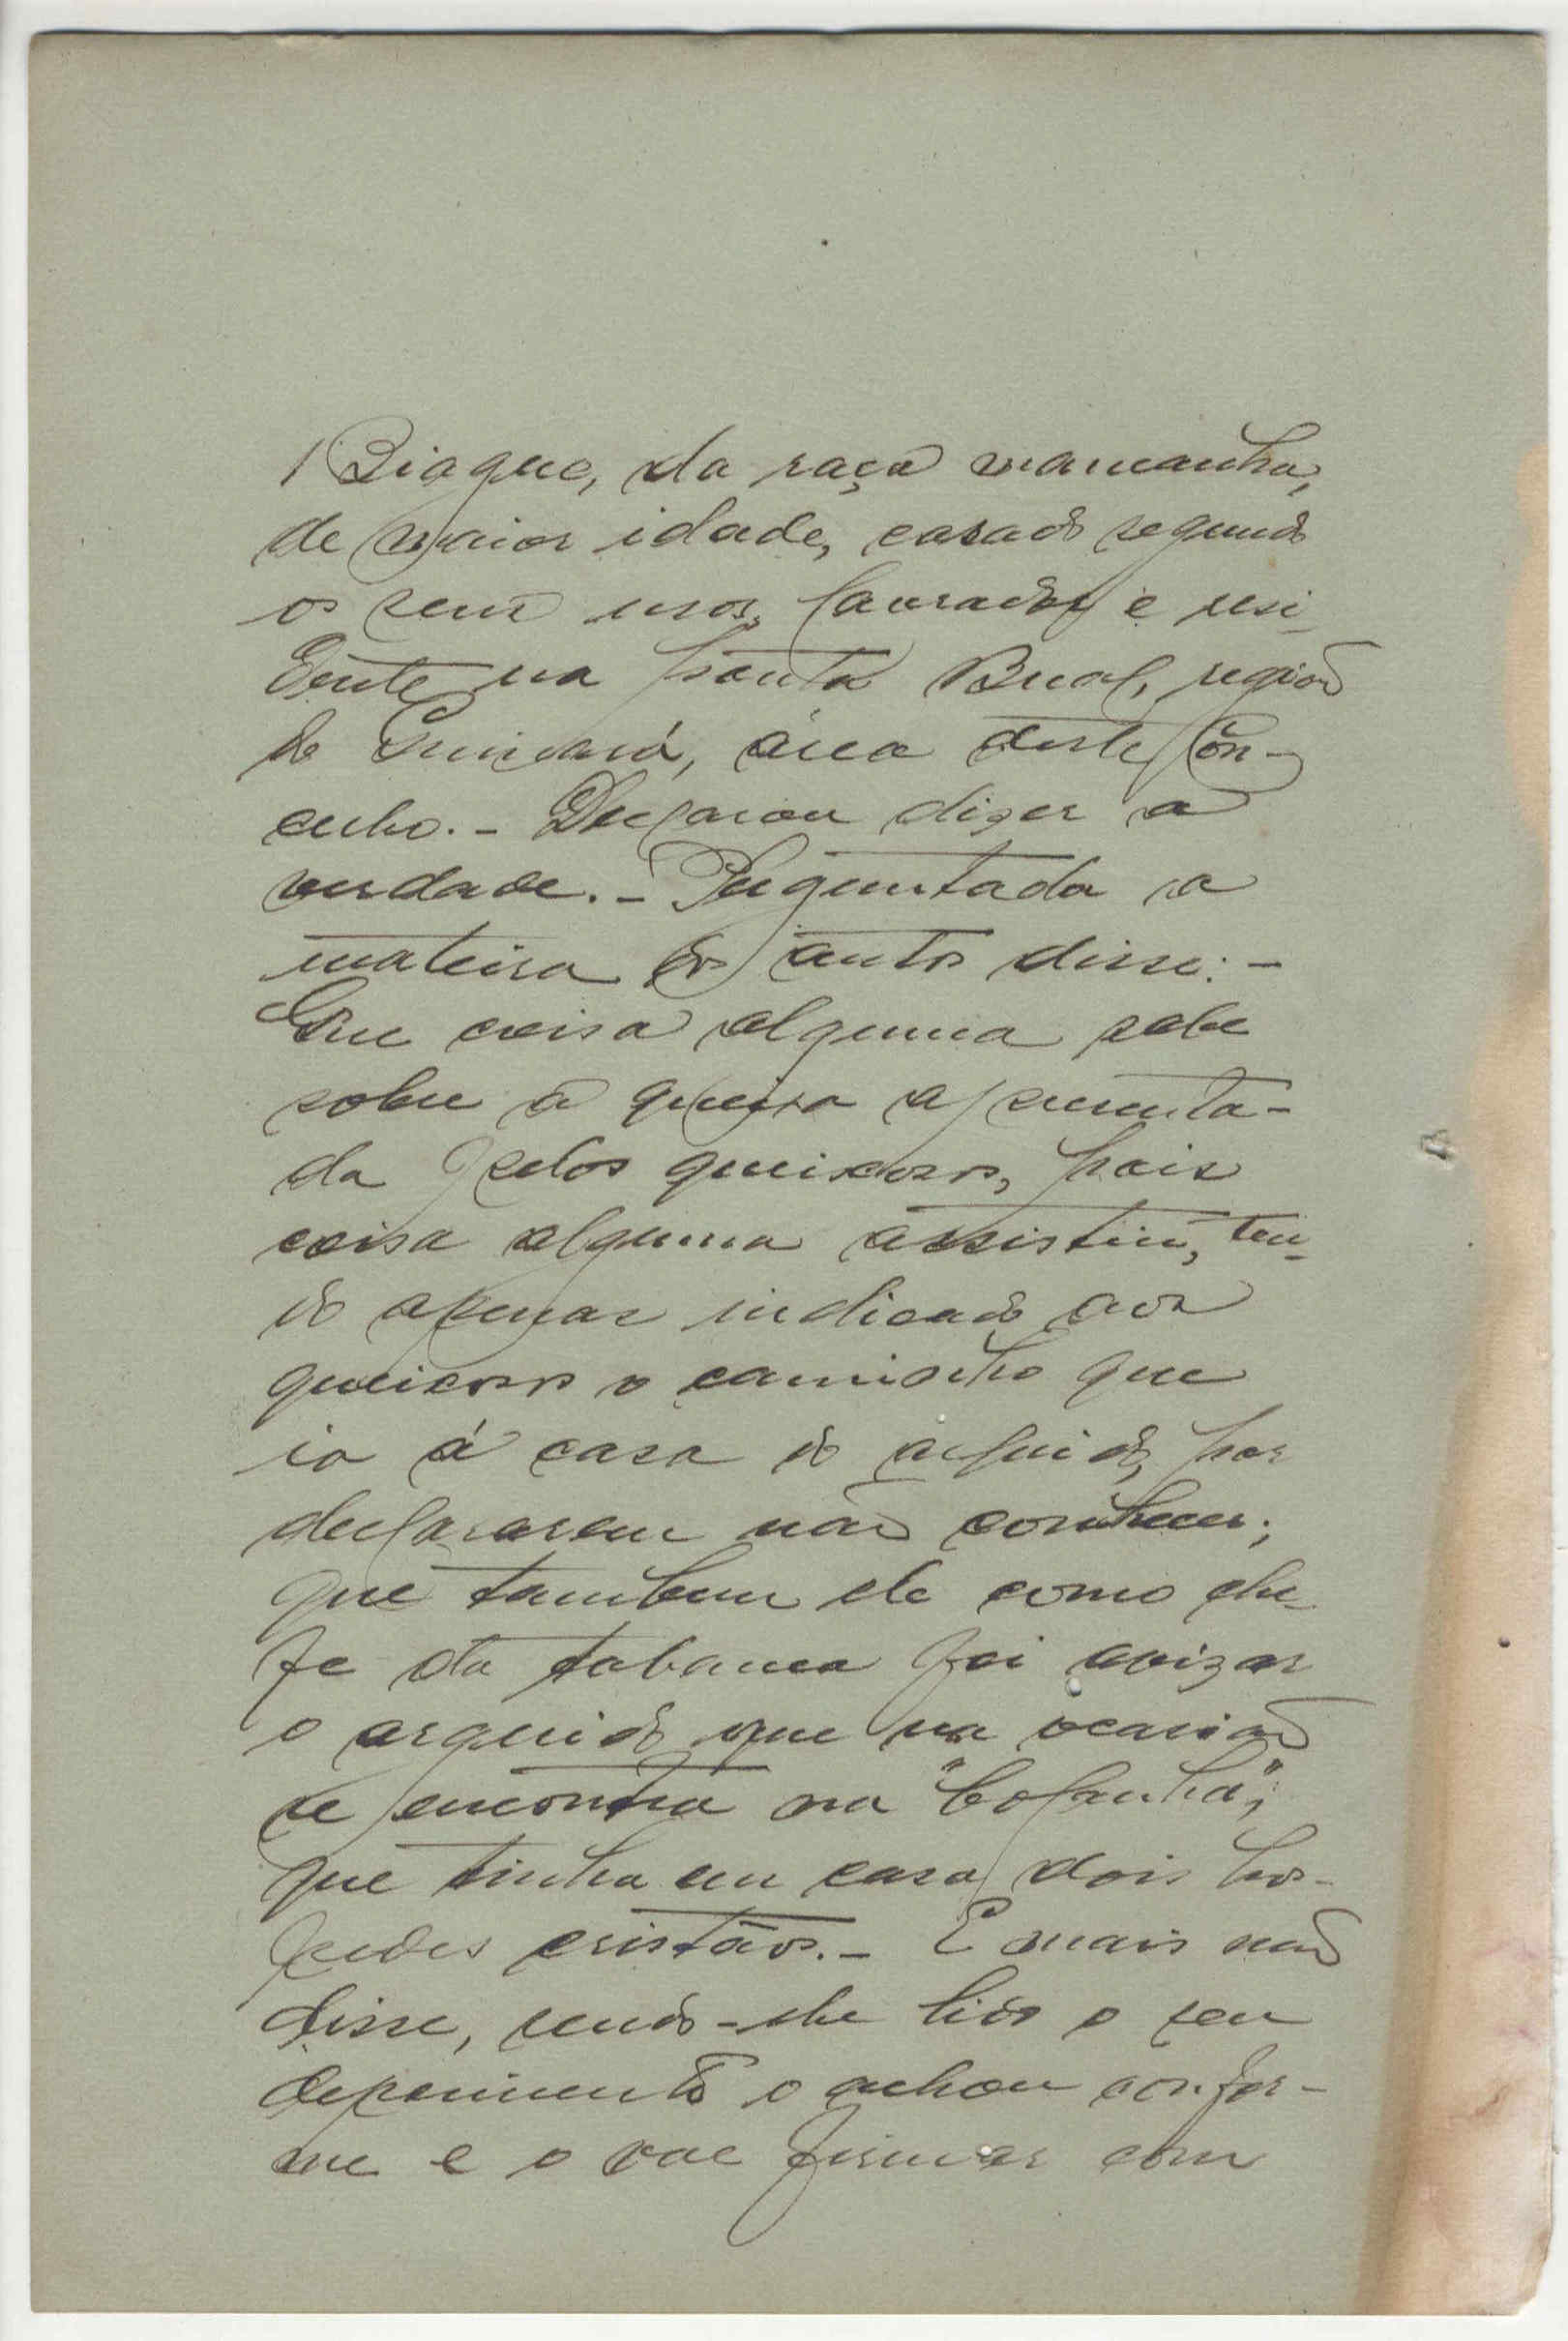 Biague, da raça mamanha,
de maior idade, casado segundo
os seus usos, lavrador e resi-
dente na ponta Bual, região
de, área deste Con-
celho. - Declarou dizer a
verdade. - Perguntada a
mateira dos autos disse: -
Que coisa alguma sabe
sobre a queixa apresenta-
da pelos queixosos, pois
coisa alguma assistiu, ten-
do apenas indicado aos
queixosos o caminho que
ia á casa do arguido, por
declararem não conhecer;
que tambem ele como che-
fe da tabanca foi avizar
o arguido que na ocasião
se encontra na "bolanha";
que tinha em casa dois hos-
pedes cristãos. - E mais não
disse, sendo-lhe lido o seu
depoimento o achou confor-
me e o vae firmar com